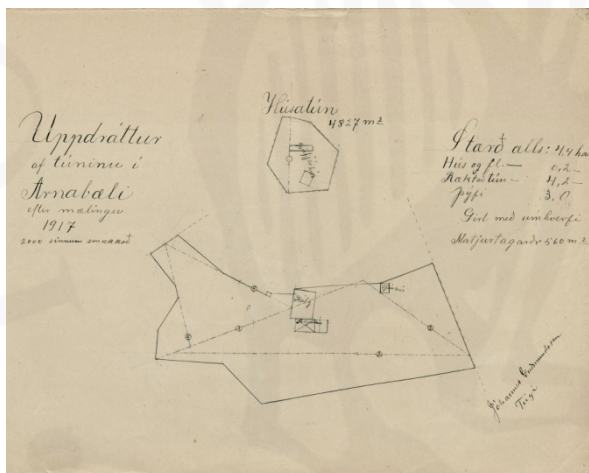 Uppdráttur
af túninu í
Arnabæli
eftir mælingu
1917
2000 sinnum smækkað
Húsatún
4827 m2
Stærð alls: 4,4 ha
Hús og fl. — 0,2 —
Ræktað tún — 4,2 —
Þýfi 3,0
Girt með umhverfi
Matjurtagarðr 560 m2
Jóhannes Guðmundsson
Teigi